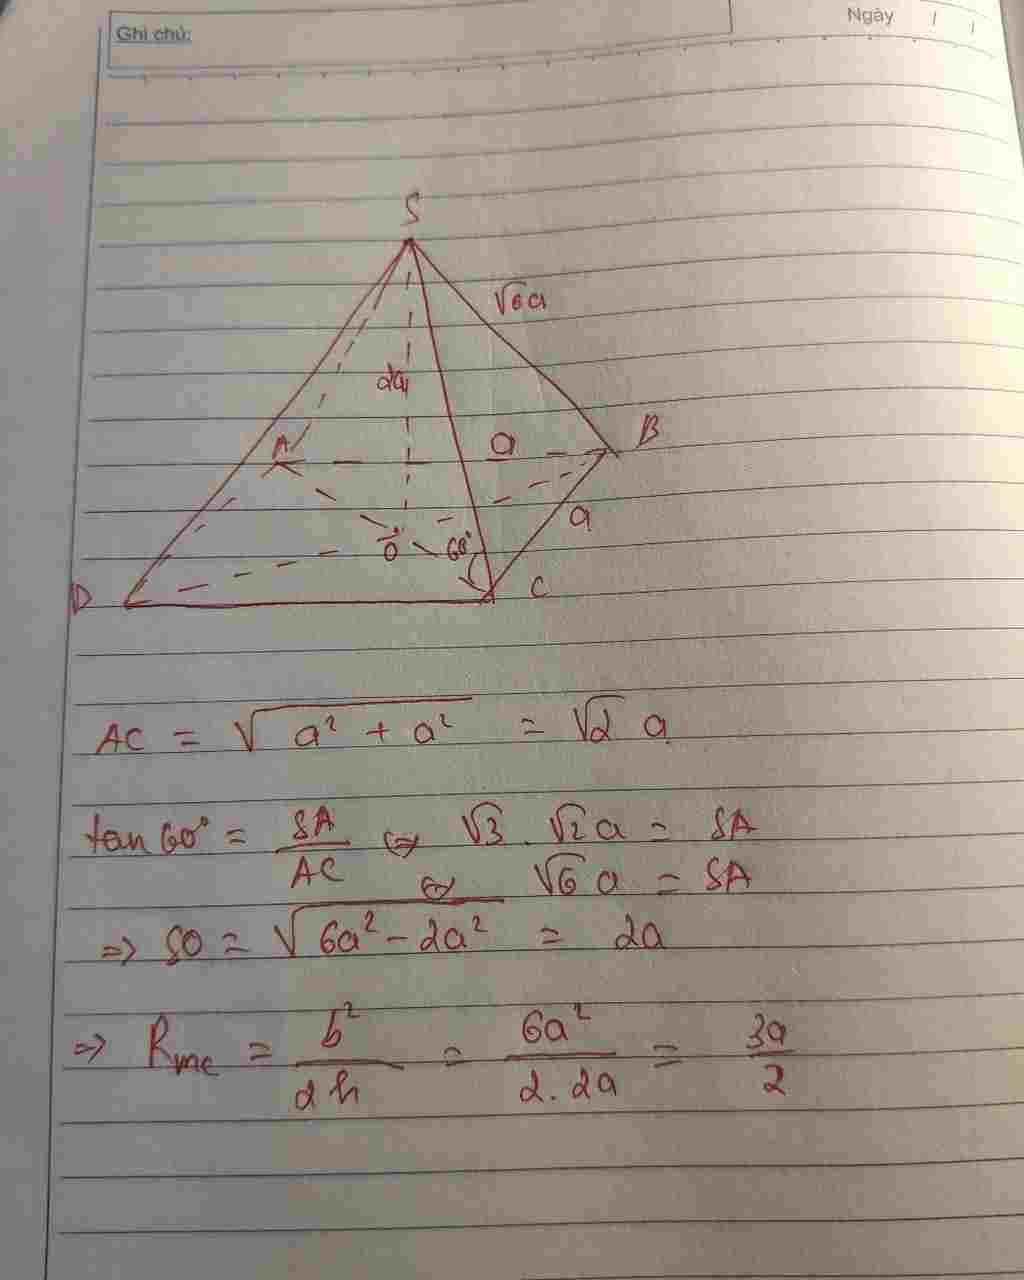 Ghi chú:
Ngày / /
S
√6a
2a
A
a
B
a
O
60°
D
C
AC = √(a² + a²) = √2 a
tan60° = SA/AC ⇔ √3 . √2a = SA
⇔ √6 a = SA
=> SO = √(6a² - 2a²) = 2a
=> Rmc = b²/2h = 6a²/2.2a = 3a/2